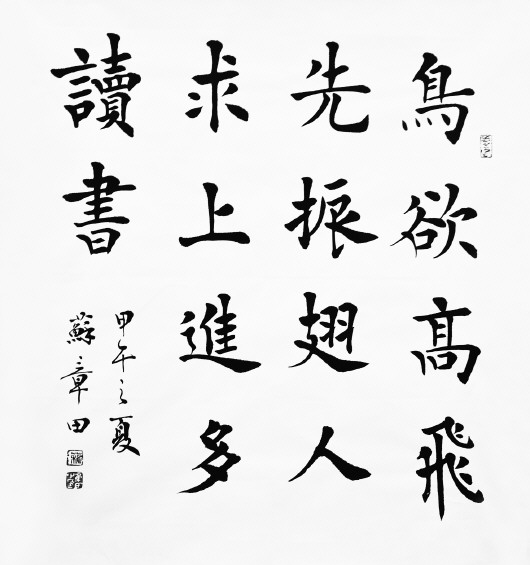 鳥欲高飛
先振翅人
求上進多
讀書
甲午之夏
蘇章田